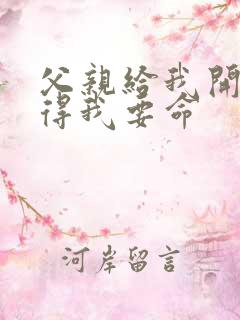 父親給我開
得我要命
河岸留言